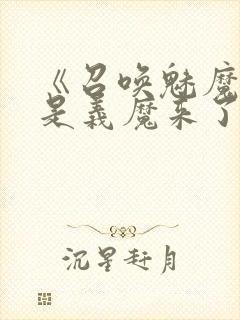 《召唤魅魔
是义魔来了
沉星赶月